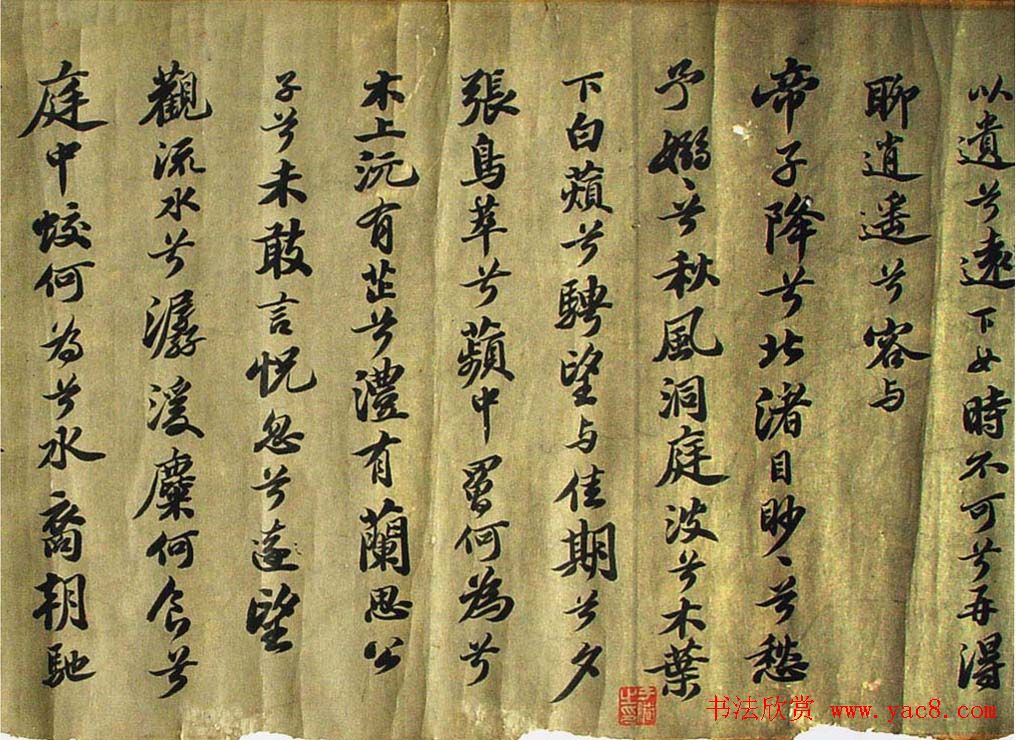 以遺兮遠下女時不可兮再得
聊逍遥兮容与
帝子降兮北渚目眇〻兮愁
予嫋〻兮秋風洞庭波兮木葉
下白薠兮騁望与佳期兮夕
張鳥萃兮蘋中罾何為兮
木上沅有芷兮澧有蘭思公
子兮未敢言怳忽兮遠望
觀流水兮潺湲麋何食兮
庭中蛟何為兮水裔朝馳
书法欣赏 www.yac8.com